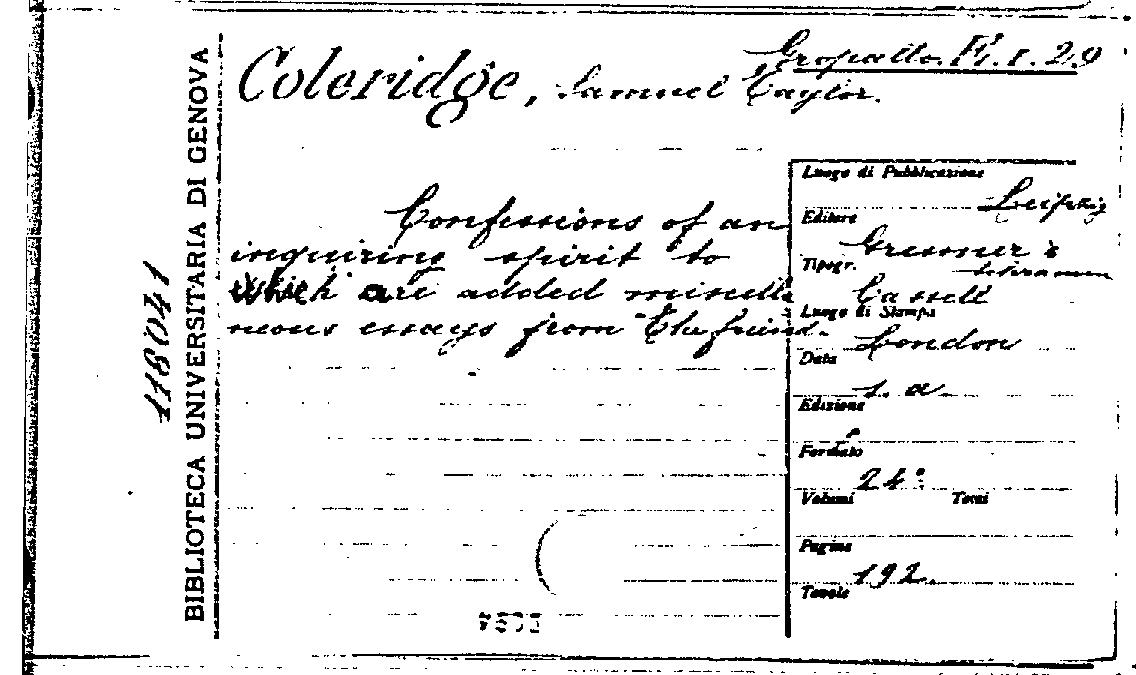 Gropallo. F. 1. 29
Coleridge, Samuel Taylor.
Confessions of an
inquiring spirit to
which are added miscella
neous essays from "The friend.
BIBLIOTECA UNIVERSITARIA DI GENOVA
118041
Luogo di Pubblicazione
Leipzig
Editore
Gressner &
Schramm
Tipogr.
Cassell
Luogo di Stampa
London
Data
s. a
Edizione
Formato
24°
Volumi Tomi
Pagine
192.
Tavole